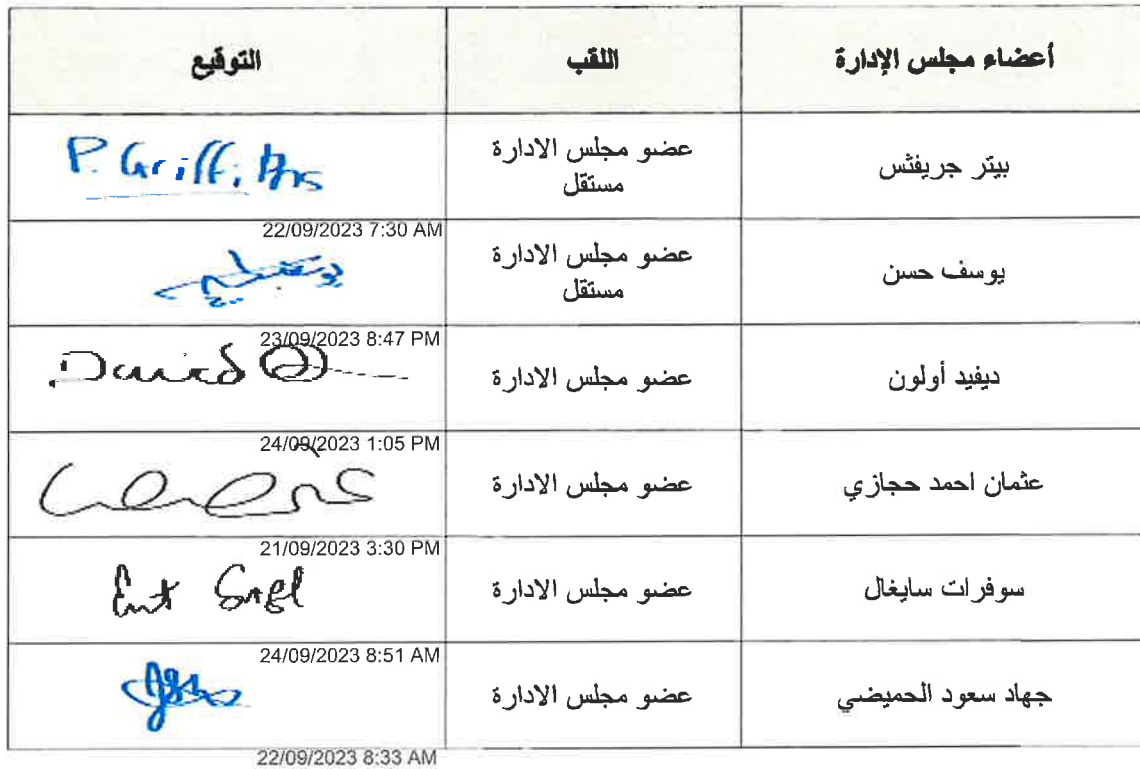 أعضاء مجلس الإدارة
اللقب
التوقيع
بيتر جريفثس
عضو مجلس الادارة
مستقل
P. Griffiths
22/09/2023 7:30 AM
يوسف حسن
عضو مجلس الادارة
مستقل
23/09/2023 8:47 PM
ديفيد أولون
عضو مجلس الادارة
David
24/09/2023 1:05 PM
عثمان احمد حجازي
عضو مجلس الادارة
21/09/2023 3:30 PM
سوفرات سايغال
عضو مجلس الادارة
24/09/2023 8:51 AM
جهاد سعود الحميضي
عضو مجلس الادارة
22/09/2023 8:33 AM